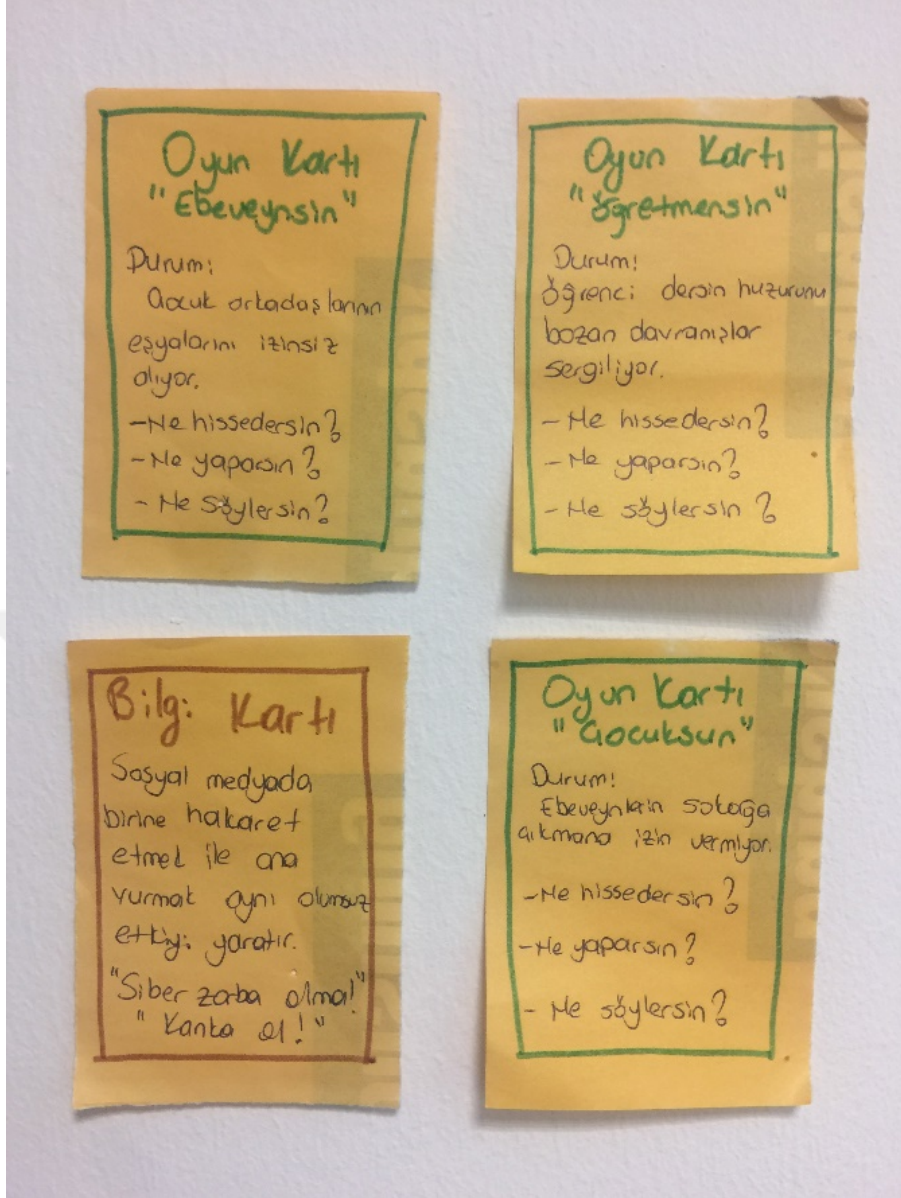 Oyun Kartı
"Ebeveynsin"
Durum:
Çocuk arkadaşlarının
eşyalarını izinsiz
alıyor.
-Ne hissedersin?
-Ne yaparsın?
- Ne söylersin?
Oyun Kartı
"Öğretmensin"
Durum:
Öğrenci dersin huzurunu
bozan davranışlar
sergiliyor.
- Ne hissedersin?
- Ne yaparsın?
- Ne söylersin?
Bilgi Kartı
Sosyal medyada
birine hakaret
etmek ile ona
vurmak aynı olumsuz
etkiyi yaratır.
"Siber zorba olma!"
"Kanka ol!"
Oyun Kartı
"Çocuksun"
Durum:
Ebeveynlerin sokağa
çıkmana izin vermiyor.
-Ne hissedersin?
-Ne yaparsın?
- Ne söylersin?